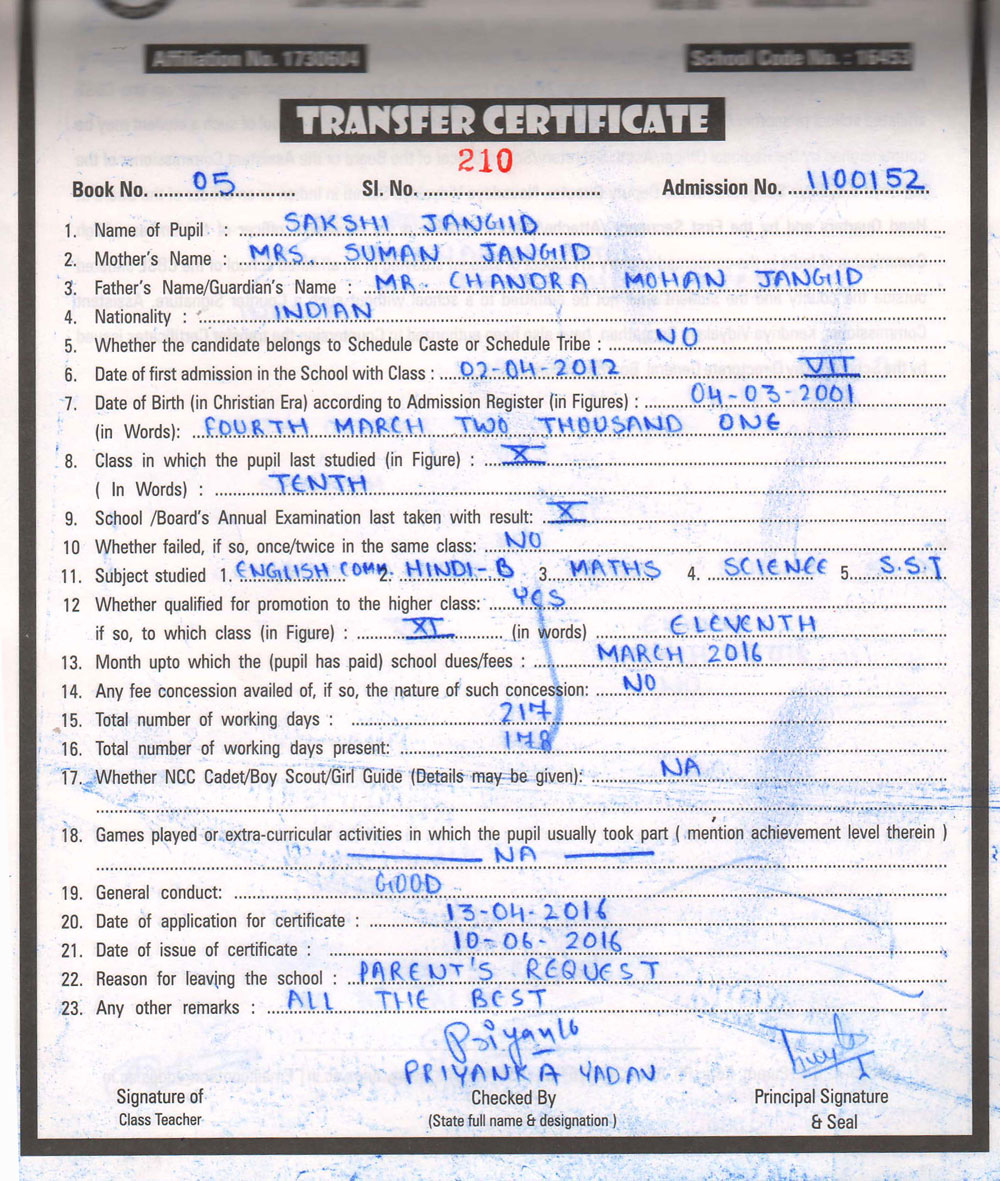 Affiliation No. 1730604 School Code No. : 16453
TRANSFER CERTIFICATE
210
Book No. 05 Sl. No. Admission No. 1100152
1. Name of Pupil : SAKSHI JANGIID
2. Mother's Name MRS. SUMAN JANGID
3. Father's Name/Guardian's Name : MR. CHANDRA MOHAN JANGID
4. Nationality : INDIAN
5. Whether the candidate belongs to Schedule Caste or Schedule Tribe : NO
6. Date of first admission in the School with Class : 02-04-2012 VII
7. Date of Birth (in Christian Era) according to Admission Register (in Figures) : 04-03-2001
(in Words): FOURTH MARCH TWO THOUSAND ONE
8. Class in which the pupil last studied (in Figure) : X
( In Words) : TENTH
9. School /Board's Annual Examination last taken with result: X
10 Whether failed, if so, once/twice in the same class: NO
11. Subject studied 1. ENGLISH COMM. 2. HINDI-B 3. MATHS 4. SCIENCE 5. S.S.T
12 Whether qualified for promotion to the higher class: YES
if so, to which class (in Figure) : XI (in words) ELEVENTH
13. Month upto which the (pupil has paid) school dues/fees : MARCH 2016
14. Any fee concession availed of, if so, the nature of such concession: NO
15. Total number of working days : 217
16. Total number of working days present: 178
17. Whether NCC Cadet/Boy Scout/Girl Guide (Details may be given): NA
18. Games played or extra-curricular activities in which the pupil usually took part ( mention achievement level therein )
NA
19. General conduct: GOOD
20. Date of application for certificate : 13-04-2016
21. Date of issue of certificate : 10-06-2016
22. Reason for leaving the school : PARENT'S REQUEST
23. Any other remarks : ALL THE BEST
PRIYANKA YADAV
Signature of Checked By Principal Signature
Class Teacher (State full name & designation ) & Seal